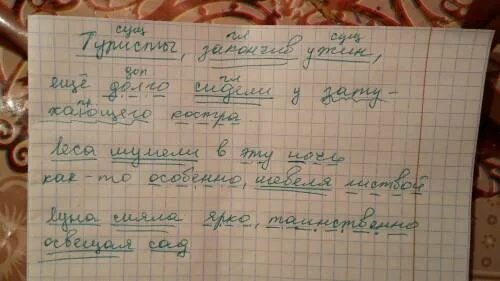 сущ гл сущ
Туристы, закончив ужин,
доп гл
ещё долго сидели у зату-
пр
хающего костра
Леса шумели в эту ночь
как-то особенно, шевеля листвой
Луна сияла ярко, таинственно
освещая сад